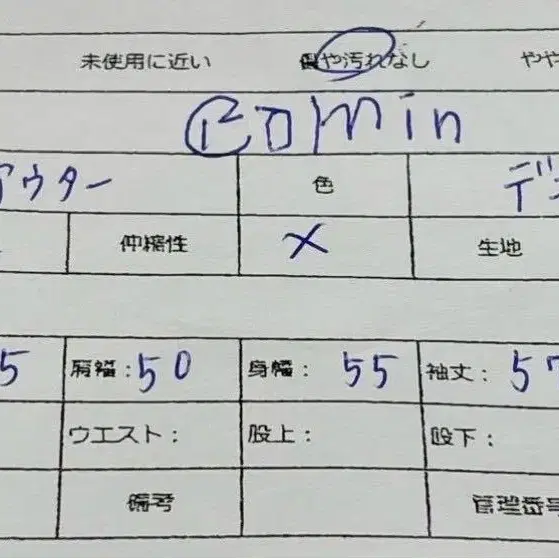 未使用に近い 傷や汚れなし やや
アウター 色 デ
伸縮性 × 生地
5 肩幅:50 身幅:55 袖丈:57
ウエスト: 股上: 股下:
備考 管理番号